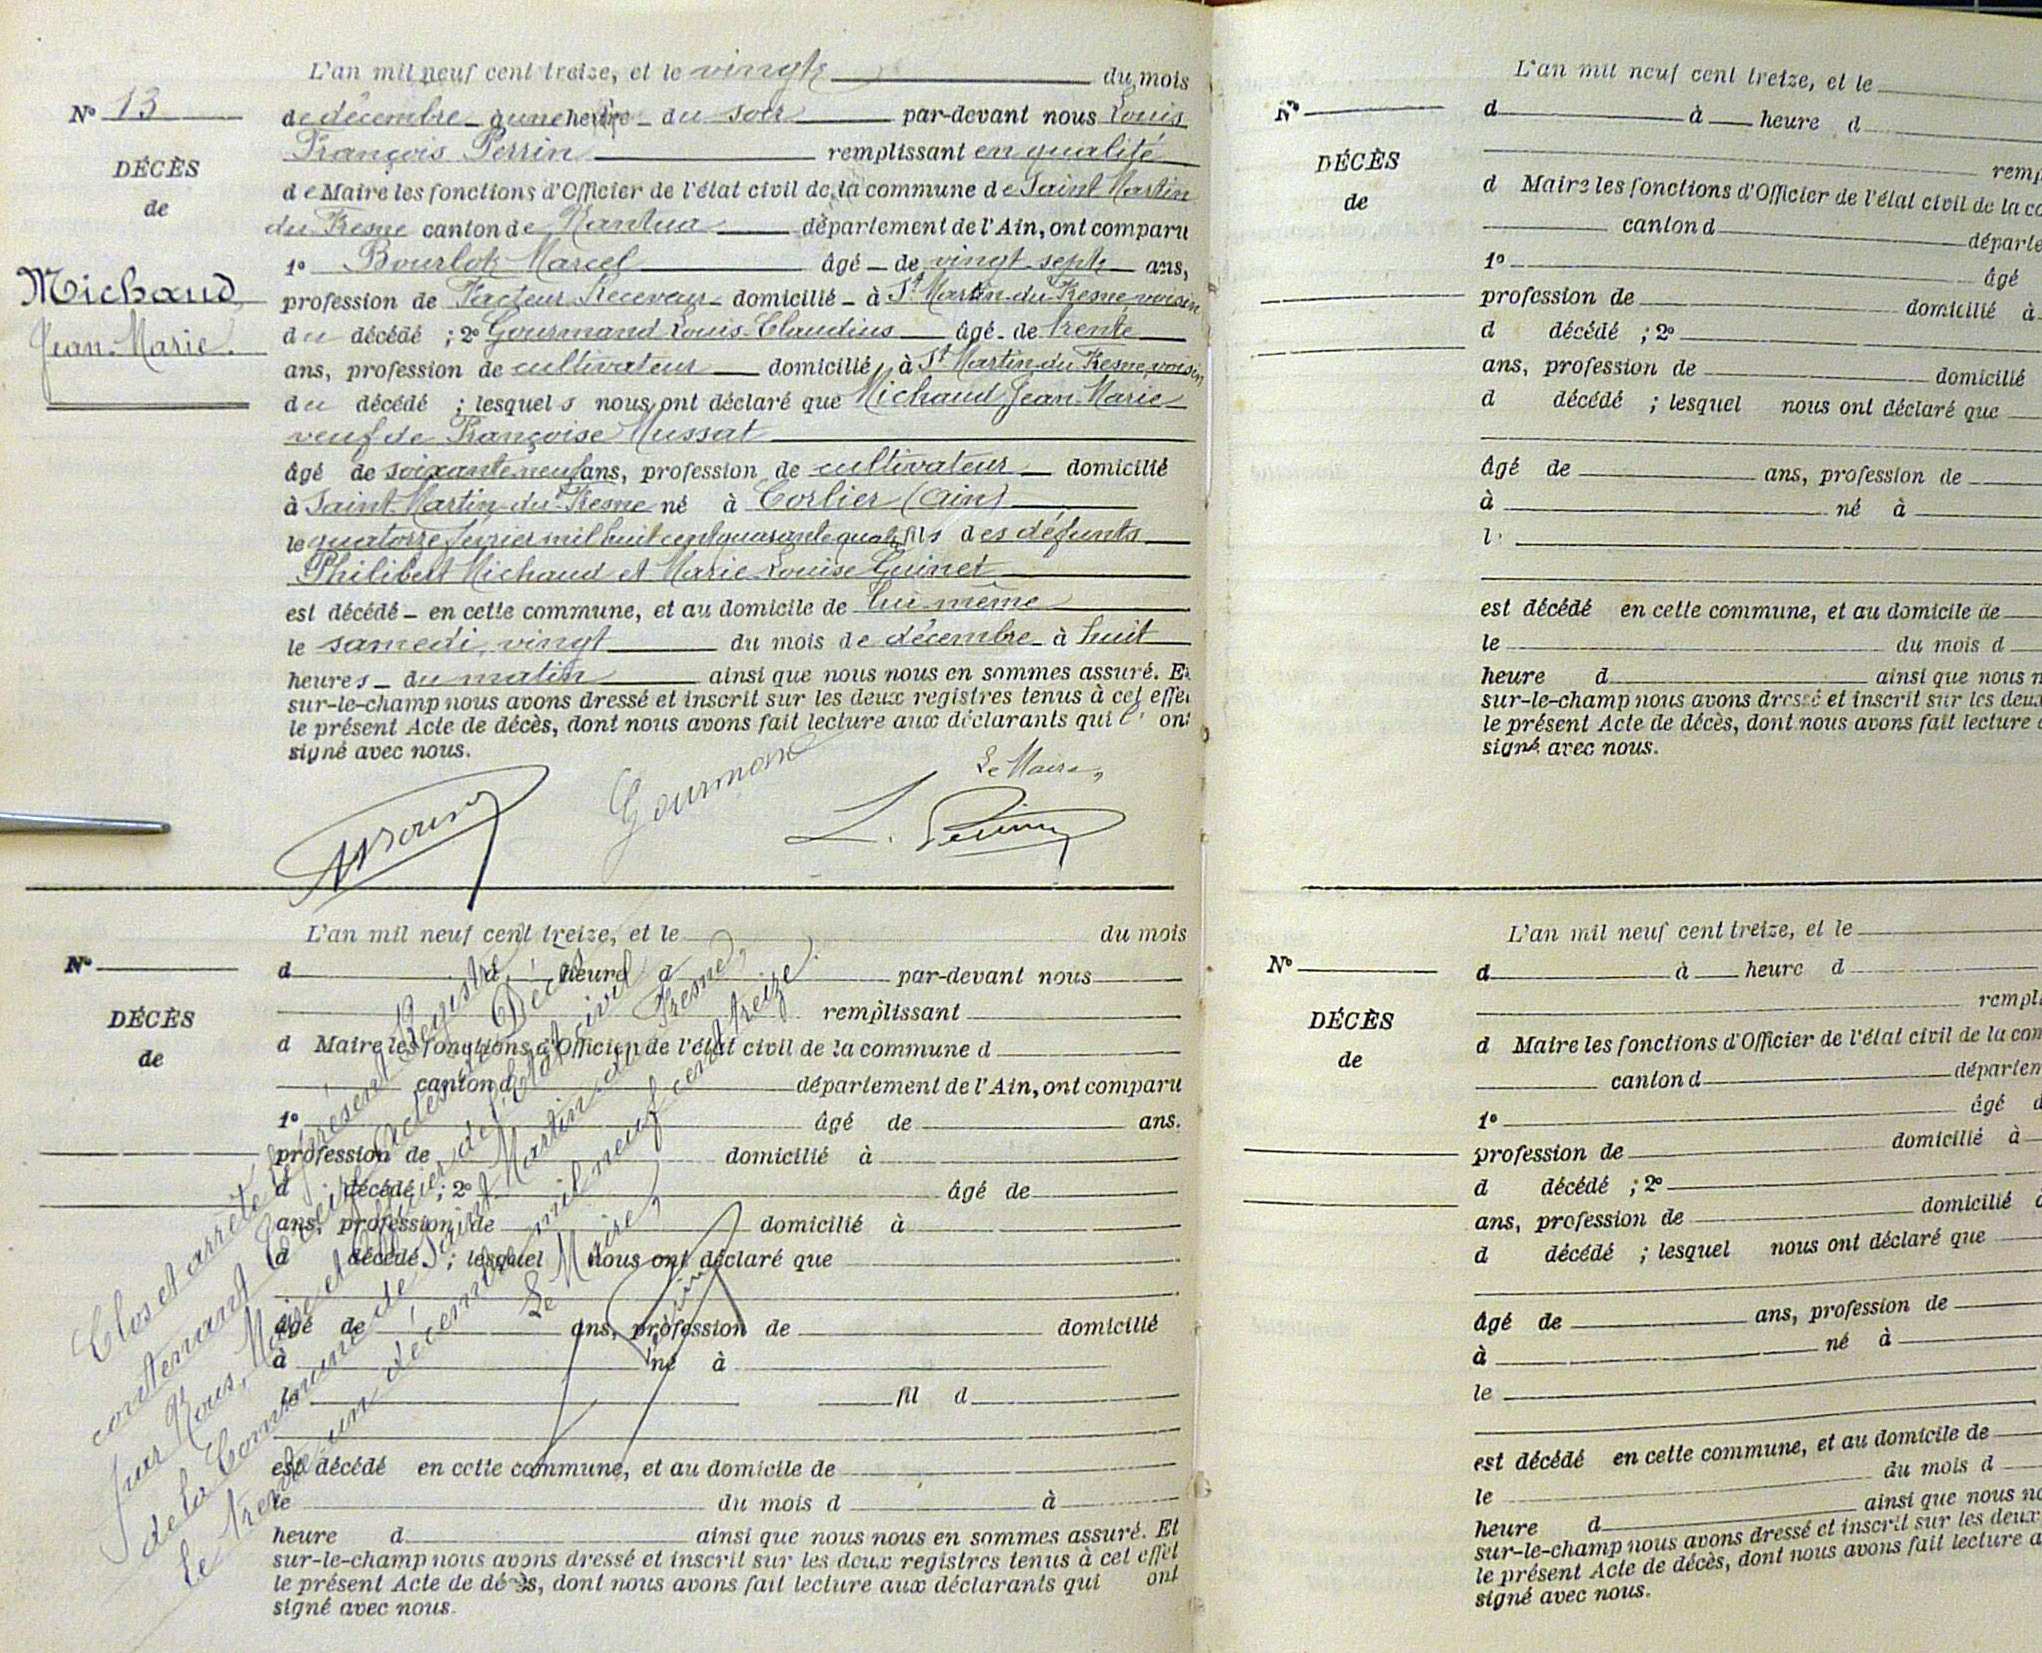 L'an mil neuf cent treize, et le vingt du mois
N° 13
de décembre à une heure du soir par-devant nous Louis
François Perrin remplissant en qualité
DÉCÈS
de Maire les fonctions d'Officier de l'état civil de la commune de Saint Martin
de
du Fresne canton de Nantua département de l'Ain, ont comparu
1° Marcel âgé de vingt sept ans,
Michaud
profession de Facteur Receveur domicilié à St Martin du Fresne voisin
Jean-Marie
du décédé ; 2° Gourmand Louis Claudius âgé de trente
ans, profession de cultivateur domicilié à St Martin du Fresne, voisin
du décédé ; lesquels nous ont déclaré que Michaud Jean-Marie
veuf de Françoise Mussat
âgé de soixante neuf ans, profession de cultivateur domicilié
à Saint Martin du Fresne né à Corlier (Ain)
le quatorze février mil huit cent quarante quatre fils des défunts
Philibert Michaud et Marie Louise Guinet
est décédé en cette commune, et au domicile de lui même
le samedi, vingt du mois de décembre à huit
heures du matin ainsi que nous nous en sommes assuré. Et
sur-le-champ nous avons dressé et inscrit sur les deux registres tenus à cet effet
le présent Acte de décès, dont nous avons fait lecture aux déclarants qui ont
signé avec nous.
Gourmand
Le Maire,
L. Perrin
L'an mil neuf cent treize, et le du mois
N°
d à heure d par-devant nous
remplissant
DÉCÈS
d Maire les fonctions d'Officier de l'état civil de la commune d
de
canton d département de l'Ain, ont comparu
1° âgé de ans.
profession de domicilié à
d décédé ; 2° âgé de
ans, profession de domicilié à
d décédé ; lesquel nous ont déclaré que
âgé de ans, profession de domicilié
à né à
le fil d
est décédé en cette commune, et au domicile de
le du mois d à
heure d ainsi que nous nous en sommes assuré. Et
sur-le-champ nous avons dressé et inscrit sur les deux registres tenus à cet effet
le présent Acte de décès, dont nous avons fait lecture aux déclarants qui ont
signé avec nous.
Clos et arrêté le présent Registre
contenant Treize actes de Décès
par Nous, Maire et Officier de l'état civil
de la Commune de Saint Martin du Fresne,
le trente un décembre mil neuf cent treize.
Le Maire,
L'an mil neuf cent treize, et le
N°
d à heure d
DÉCÈS
d Maire les fonctions d'Officier de l'état civil de la
de
canton d
1° âgé
profession de domicilié à
d décédé ; 2°
ans, profession de domicilié
d décédé ; lesquel nous ont déclaré que
âgé de ans, profession de
à né à
l
est décédé en cette commune, et au domicile de
le du mois d
heure d ainsi que nous
sur-le-champ nous avons dressé et inscrit sur les deux
le présent Acte de décès, dont nous avons fait lecture
signé avec nous.
L'an mil neuf cent treize, et le
N°
d à heure d
DÉCÈS
d Maire les fonctions d'Officier de l'état civil de la
de
canton d
1° âgé
profession de domicilié à
d décédé ; 2°
ans, profession de domicilié
d décédé ; lesquel nous ont déclaré que
âgé de ans, profession de
à né à
le
est décédé en cette commune, et au domicile de
le du mois d
heure d ainsi que nous
sur-le-champ nous avons dressé et inscrit sur les deux
le présent Acte de décès, dont nous avons fait lecture
signé avec nous.